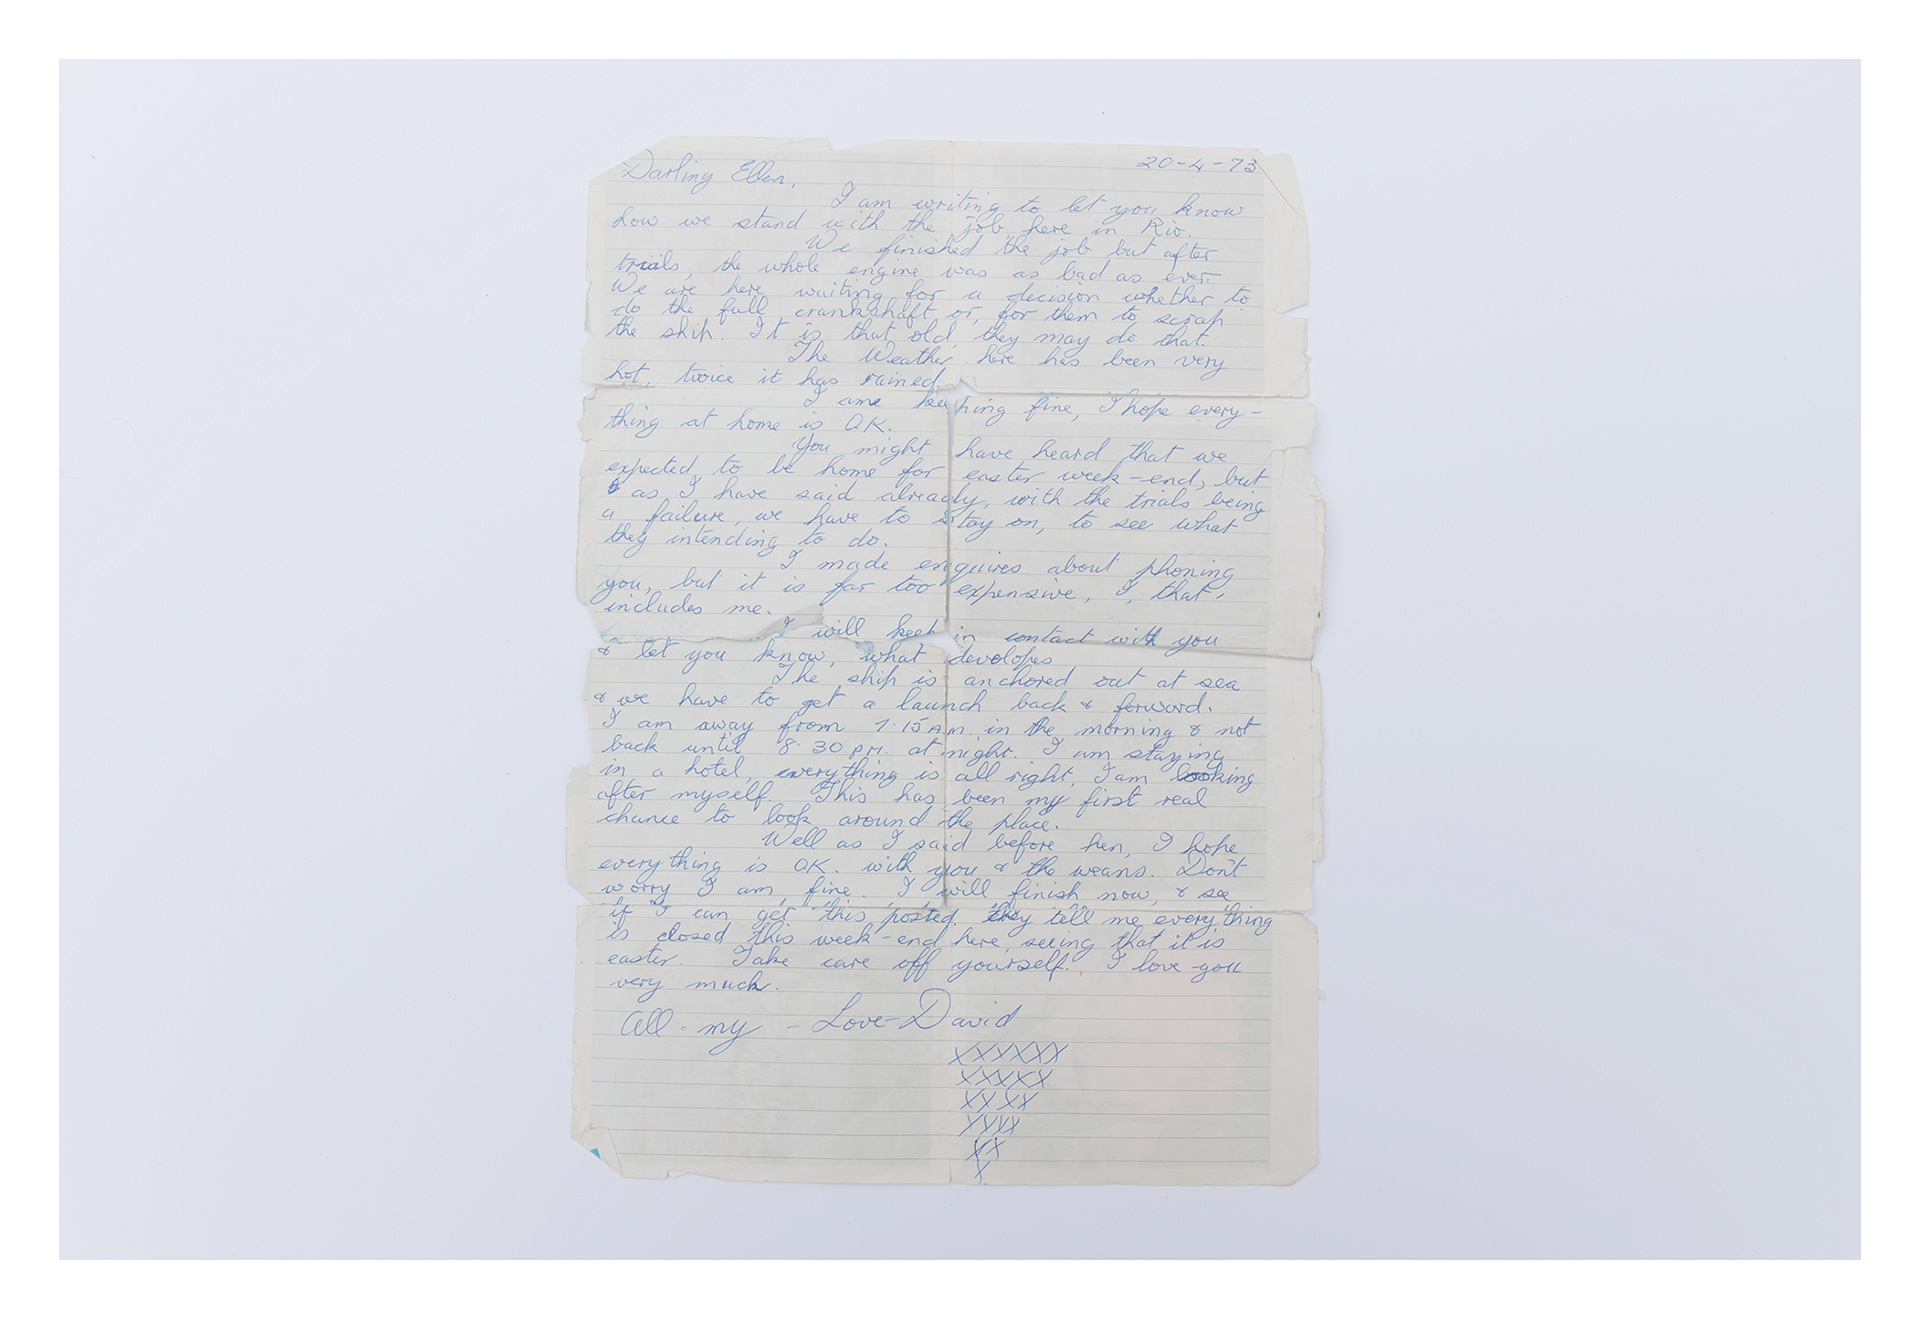 20-4-73
Darling Ellen,
I am writing to let you know
how we stand with the job, here in Rio.
We finished the job but after
trials, the whole engine was as bad as ever.
We are here waiting for a decision whether to
do the full crankshaft, or, for them to scrap
the ship. It is that old, they may do that.
The Weather here has been very
hot, twice it has rained.
I ame keeping fine, I hope every-
thing at home is O.K.
You might have heard that we
expected to be home for easter week-end, but
as I have said already, with the trials being
a failure, we have to stay on, to see what
they intending to do.
I made enquires about phoning
you, but it is far too expensive, I, that,
includes me.
I will keep in contact with you
& let you know, what developes
The ship is anchored out at sea
& we have to get a launch back & forward.
I am away from 7.15 A.M. in the morning & not
back until 8.30 P.M. at night. I am staying
in a hotel, everything is all right, I am looking
after myself. This has been my first real
chance to look around the place.
Well as I said before hen, I hope
everything is O.K. with you & the weans. Don't
worry I am, fine. I will finish now, & see
if I can get this posted. they tell me everything
is closed this week-end here, seeing that it is
easter. Take care off yourself. I love you
very much.
All - my - Love - David
XXXXXX
XXXXX
XXXX
XXXX
XX
X